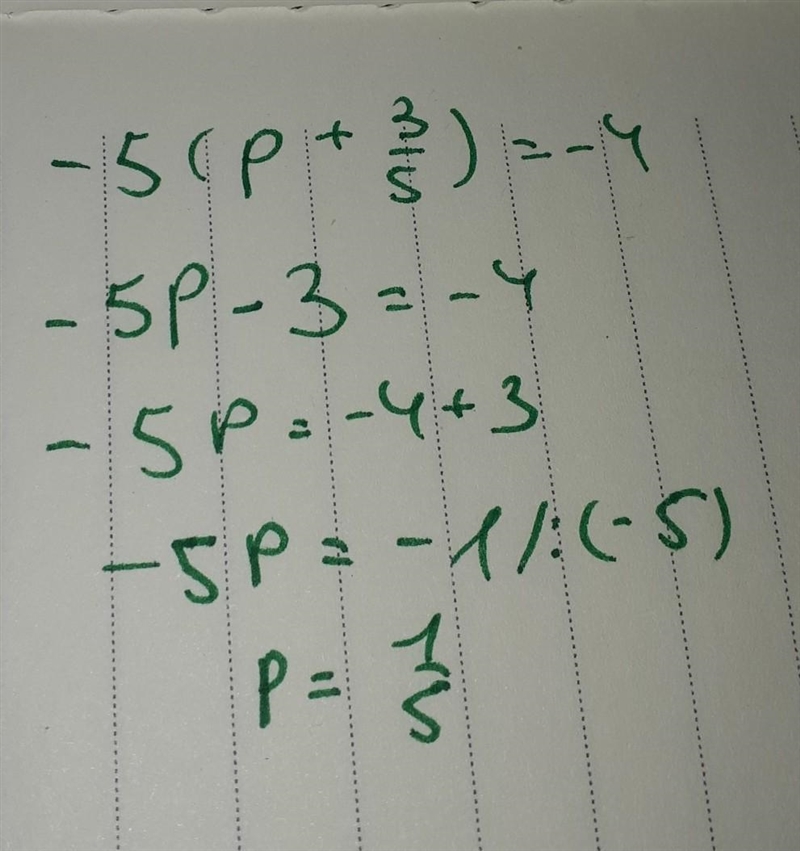 -5(p + 3/5) = -4
-5p - 3 = -4
-5p = -4 + 3
-5p = -1 /:(-5)
p = 1/5